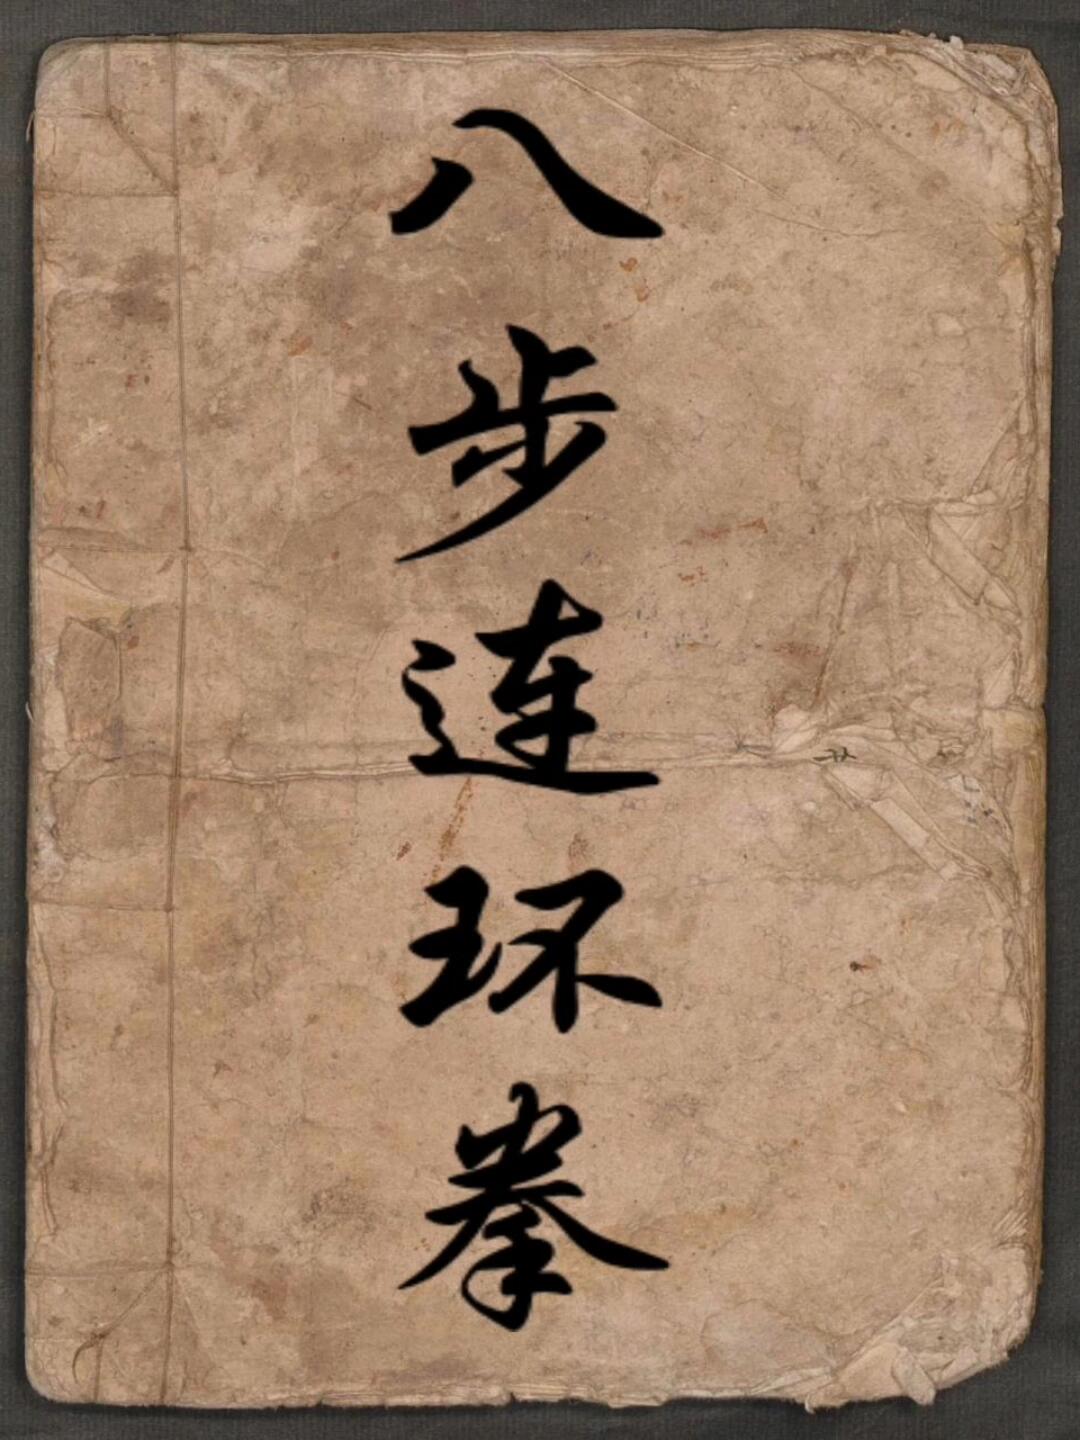 八步连环拳